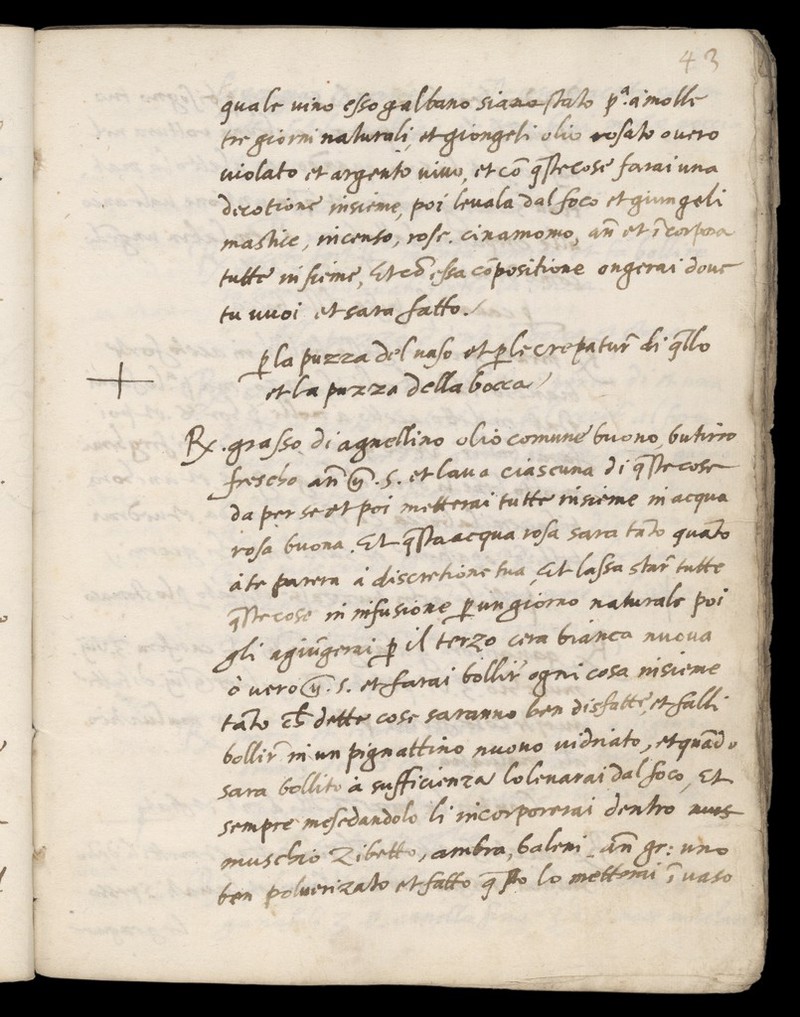 43
quale uino esso galbano siano stato p.ª à molle
tre giorni naturali, et giongeli olio rosato ouero
uiolato et argento uiuo, et cō q̄ste cose farai una
decotione insieme, poi leuala dal foco et giungeli
mastice, incenso, rose. cinamomo, an̄ et īcorpora
tutte insieme, Et cō essa cōpositione ongerai doue
tu uuoi et sara fatto.
p̱ la puzza del naso et p̱ le crepatur̄ di q̄llo
et la puzza della bocca
Rx. grasso di agnellino olio comune buono, butirro
frescho an̄ .s. et laua ciascuna di q̄ste cose
da per se et poi metterai tutte insieme in acqua
rosa buona. Et q̄sta acqua rosa sara tāto quāto
à te parera à discretione tua, Et lassa star̄ tutte
q̄ste cose in infusione p̱ un giorno naturale poi
gli agiūgerai p̱ il terzo cera bianca nuoua
ò uero .s. et farai bollir̄ ogni cosa insieme
tāto ch̄ dette cose saranno ben disfatte, et falli
bollir̄ in un pignattino nuouo uidriato, et quādo
sara bollito à sufficienza lo leuarai dal foco, Et
sempre mesedandolo li incorporerai dentro
muschio Zibetto, ambra, baleni an̄ gr: uno
ben poluerizato et fatto q̄sto lo metterai ī uaso